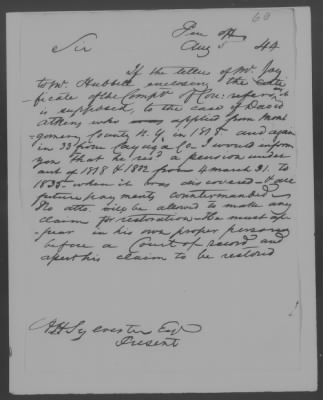 60
Pen off
Sir Aug 44
If the letter of Mr Jay
to Mr. Hubbell enclosing the certi
ficate of the Compt of Con. refers, it
is supposed, to the case of David
Atkins who applied from Mont
gomery County N.Y. in 1818 and again
in 33 from Cayuga Co. I would inform
you that he recd a pension under
act of 1818 & 1832 from 4 march 31. to
1835 when it was discovered &
future payments countermanded
No atto. will be allowed to make any
claim for restoration. He must ap-
pear in his own proper person
before a Court of record and
assert his claim to be restored
H H Sylvester Esq
Present